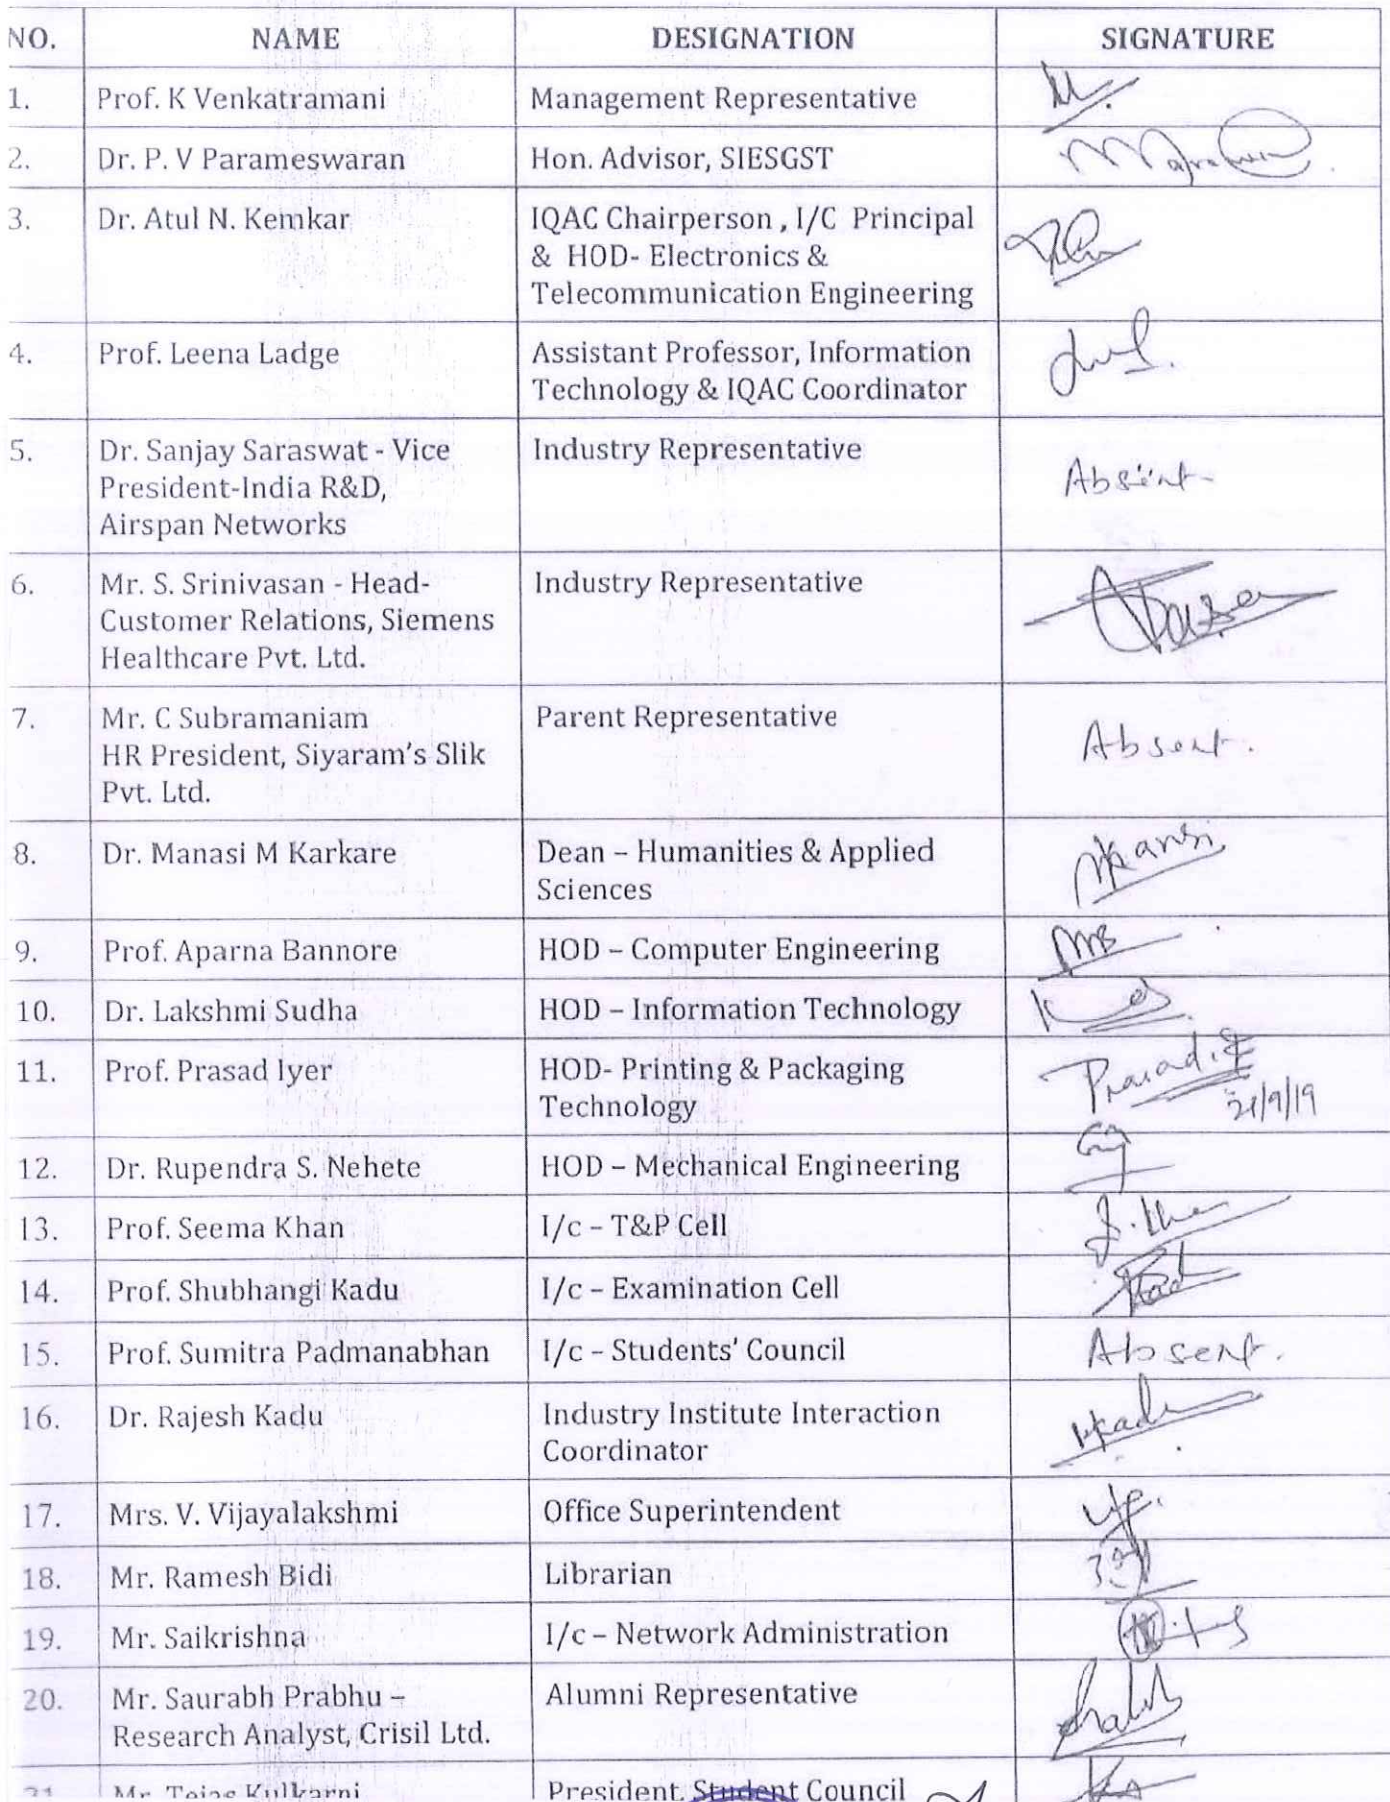 NO. NAME DESIGNATION SIGNATURE
1. Prof. K Venkatramani Management Representative
2. Dr. P. V Parameswaran Hon. Advisor, SIESGST
3. Dr. Atul N. Kemkar IQAC Chairperson , I/C Principal
& HOD- Electronics &
Telecommunication Engineering
4. Prof. Leena Ladge Assistant Professor, Information
Technology & IQAC Coordinator
5. Dr. Sanjay Saraswat - Vice Industry Representative
President-India R&D, Absent
Airspan Networks
6. Mr. S. Srinivasan - Head- Industry Representative
Customer Relations, Siemens
Healthcare Pvt. Ltd.
7. Mr. C Subramaniam Parent Representative
HR President, Siyaram's Slik Absent.
Pvt. Ltd.
8. Dr. Manasi M Karkare Dean – Humanities & Applied
Sciences
9. Prof. Aparna Bannore HOD – Computer Engineering
10. Dr. Lakshmi Sudha HOD – Information Technology
11. Prof. Prasad Iyer HOD- Printing & Packaging
Technology 21/9/19
12. Dr. Rupendra S. Nehete HOD – Mechanical Engineering
13. Prof. Seema Khan I/c – T&P Cell
14. Prof. Shubhangi Kadu I/c – Examination Cell
15. Prof. Sumitra Padmanabhan I/c – Students' Council Absent.
16. Dr. Rajesh Kadu Industry Institute Interaction
Coordinator
17. Mrs. V. Vijayalakshmi Office Superintendent
18. Mr. Ramesh Bidi Librarian
19. Mr. Saikrishna I/c – Network Administration
20. Mr. Saurabh Prabhu – Alumni Representative
Research Analyst, Crisil Ltd.
21 Mr. Tejas Kulkarni President, Student Council